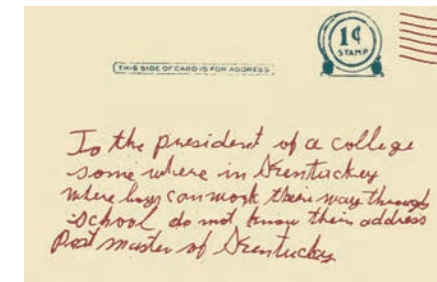 1¢
STAMP
THIS SIDE OF CARD IS FOR ADDRESS
To the president of a college
some where in Krentuckey
where boys can work their way through
school do not know their address
Post master of Krentucky